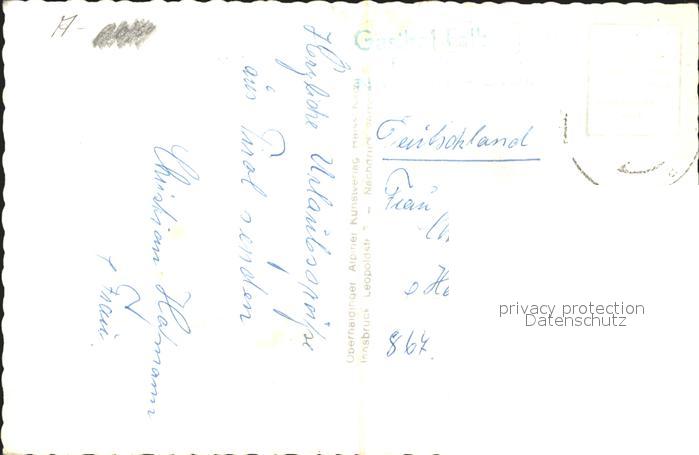 A-
Herzliche Urlaubsgrüße
aus Tirol senden
Christian Hofmann
+ Frau.
Überhaidinger Alpiner Kunstverlag
Innsbruck Leopoldstr.
Gasthof
Deutschland
Frau
867.
privacy protection
Datenschutz